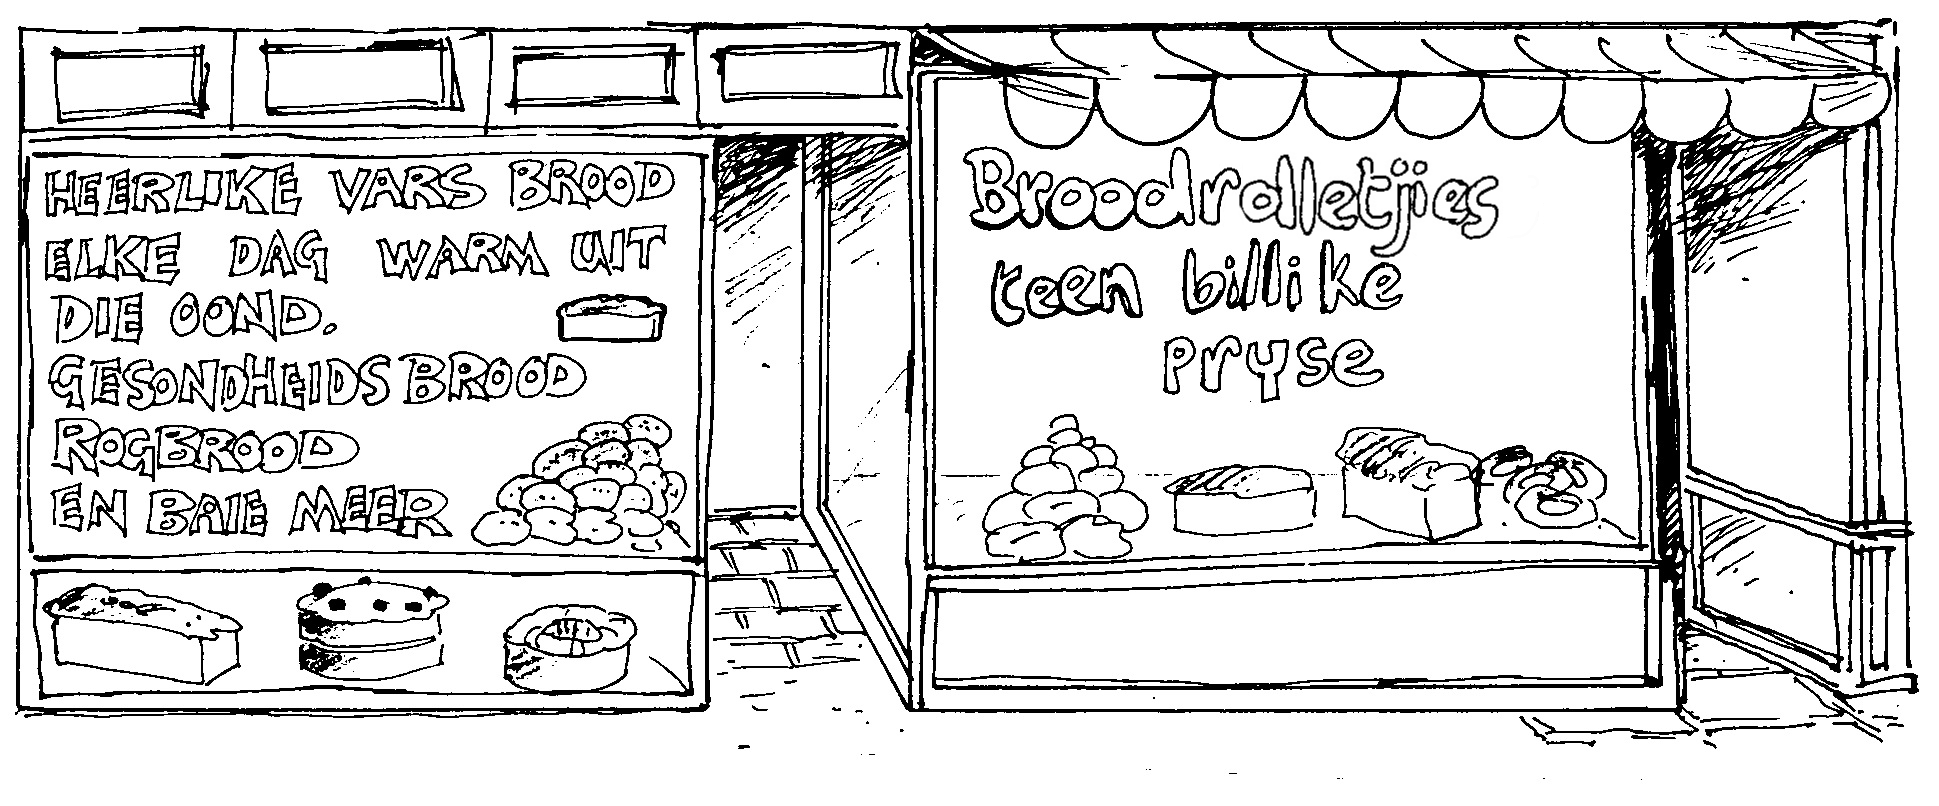 HEERLIKE VARS BROOD
ELKE DAG WARM UIT
DIE OOND.
GESONDHEIDSBROOD
ROGBROOD
EN BAIE MEER
Broodrolletjies
teen billike
pryse